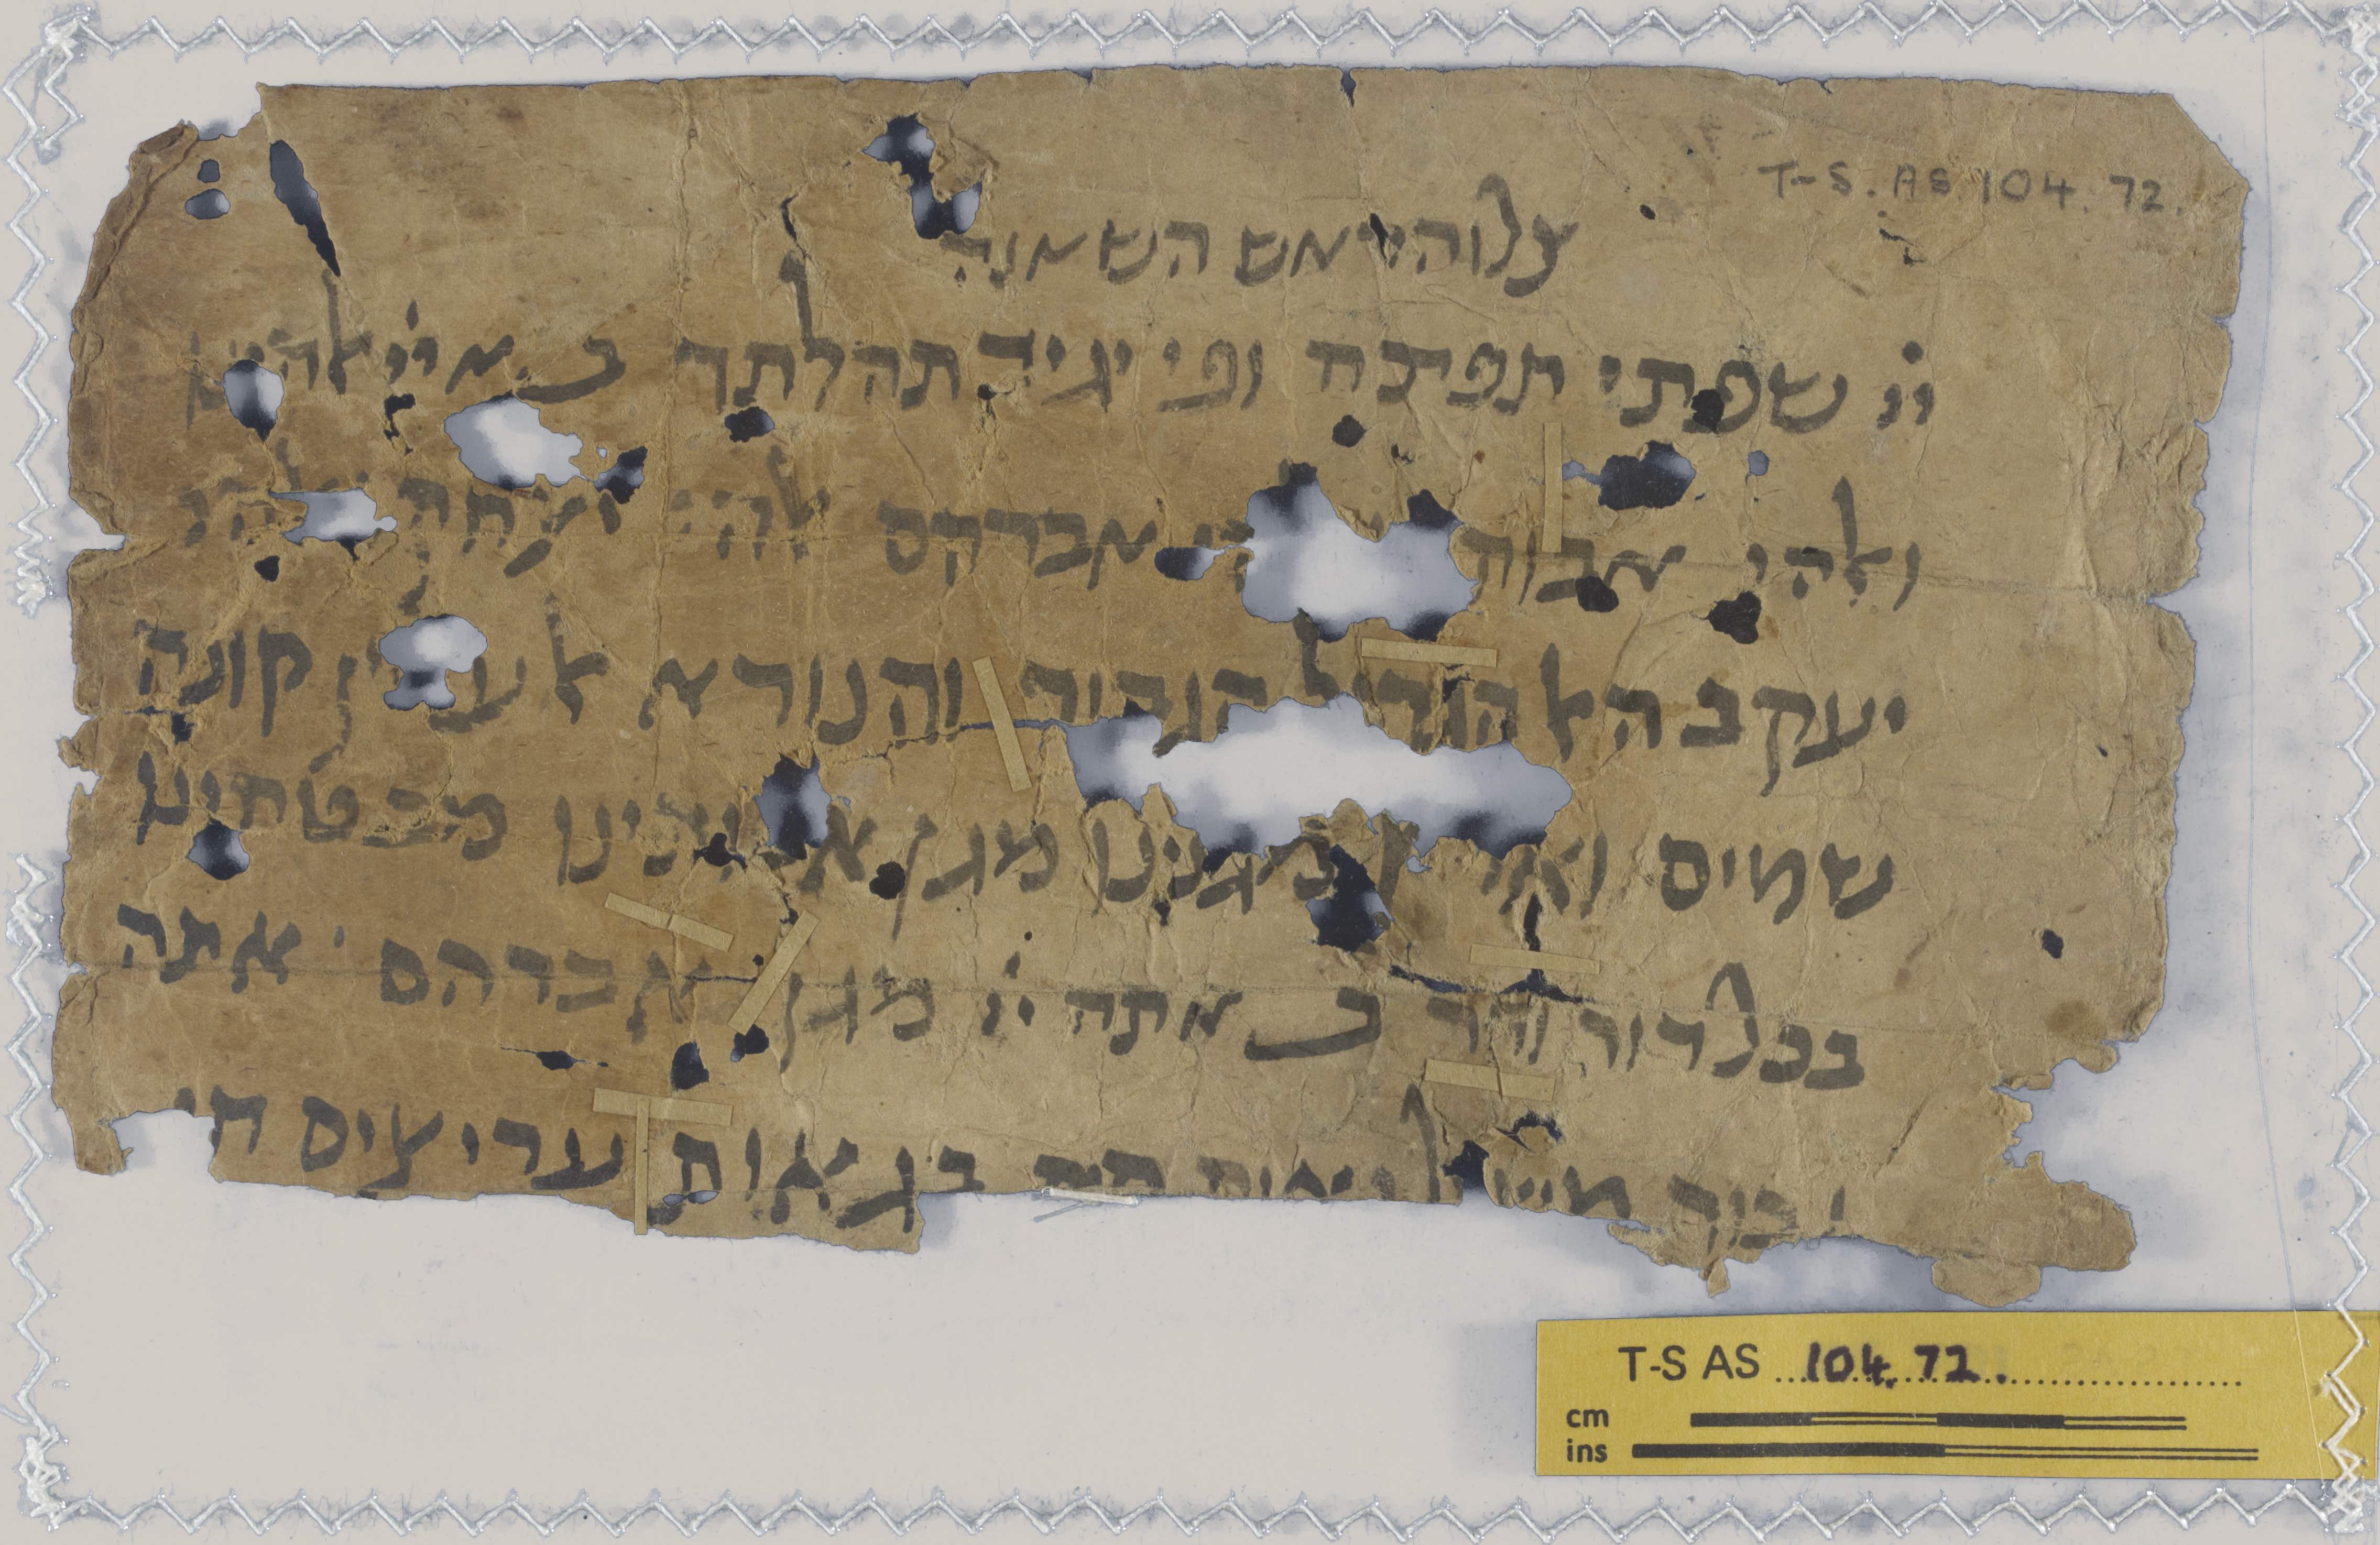 T-S. AS 104. 72.
צלוה יאש השאנה
יי שפתי תפתח ופי יגיד תהלתך ב אתה יי אלהינו
ואלהי אבות אברהם אלהי יצחק
יעקב האל הגדל הגבור והנורא אל עליון קונה
שמים מגנינו מגן אבותינו מבטחינו
בכל דור ודר ב אתה יי מגן אברהם אתה
גבור משפיל גאים בגאות עריצים חי
T-S AS 104. 72.
cm
ins